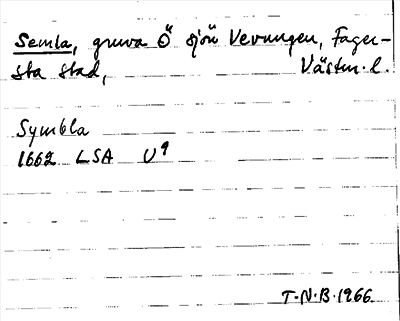 Semla, gruva Ö sjön Vevungen, Fager-
sta stad, Västm. l.
Symbla
1662 LSA U9
T.N.B. 1966